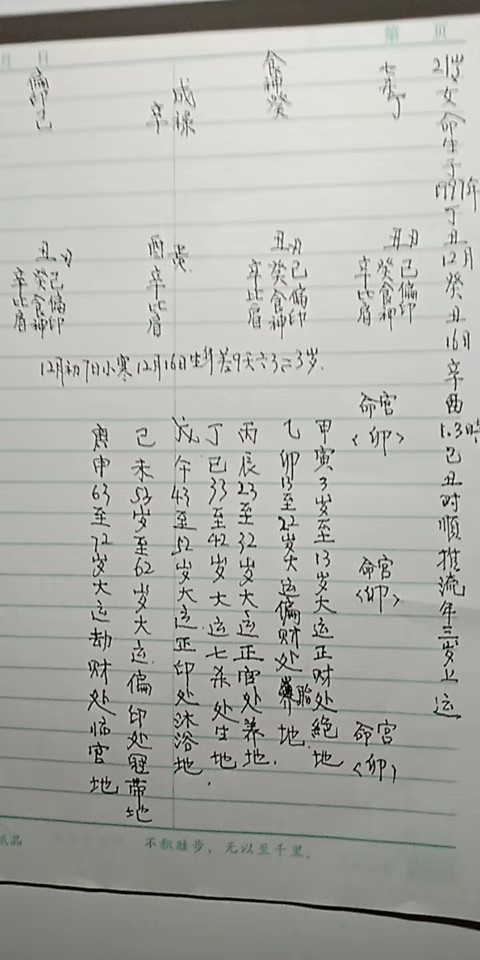 第 页
月 日
21岁女命生于1997年丁丑12月癸丑16日辛酉1.3時己丑时順推流年三岁上运
七杀丁
食神癸
戌祿
辛
偏印己
丑刃
己偏印
癸食神
辛比肩
丑刃
己偏印
癸食神
辛比肩
酉
辛比肩
丑刃
己偏印
癸食神
辛比肩
12月初7日小寒12月16日生年差9天六3=3岁.
命宫
<卯>
命宫
<卯>
命宫
<卯>
甲寅3岁至13岁大运正财处絕地
乙卯13至22岁大运偏财处胎地.
丙辰23至32岁大运正官处养地.
丁巳33至42岁大运七杀处生地.
戊午43至52岁大运正印处沐浴地
己未53岁至62岁大运偏印处冠帶地
庚申63至72岁大运劫财处临官地
纸品
不积跬步，无以至千里。